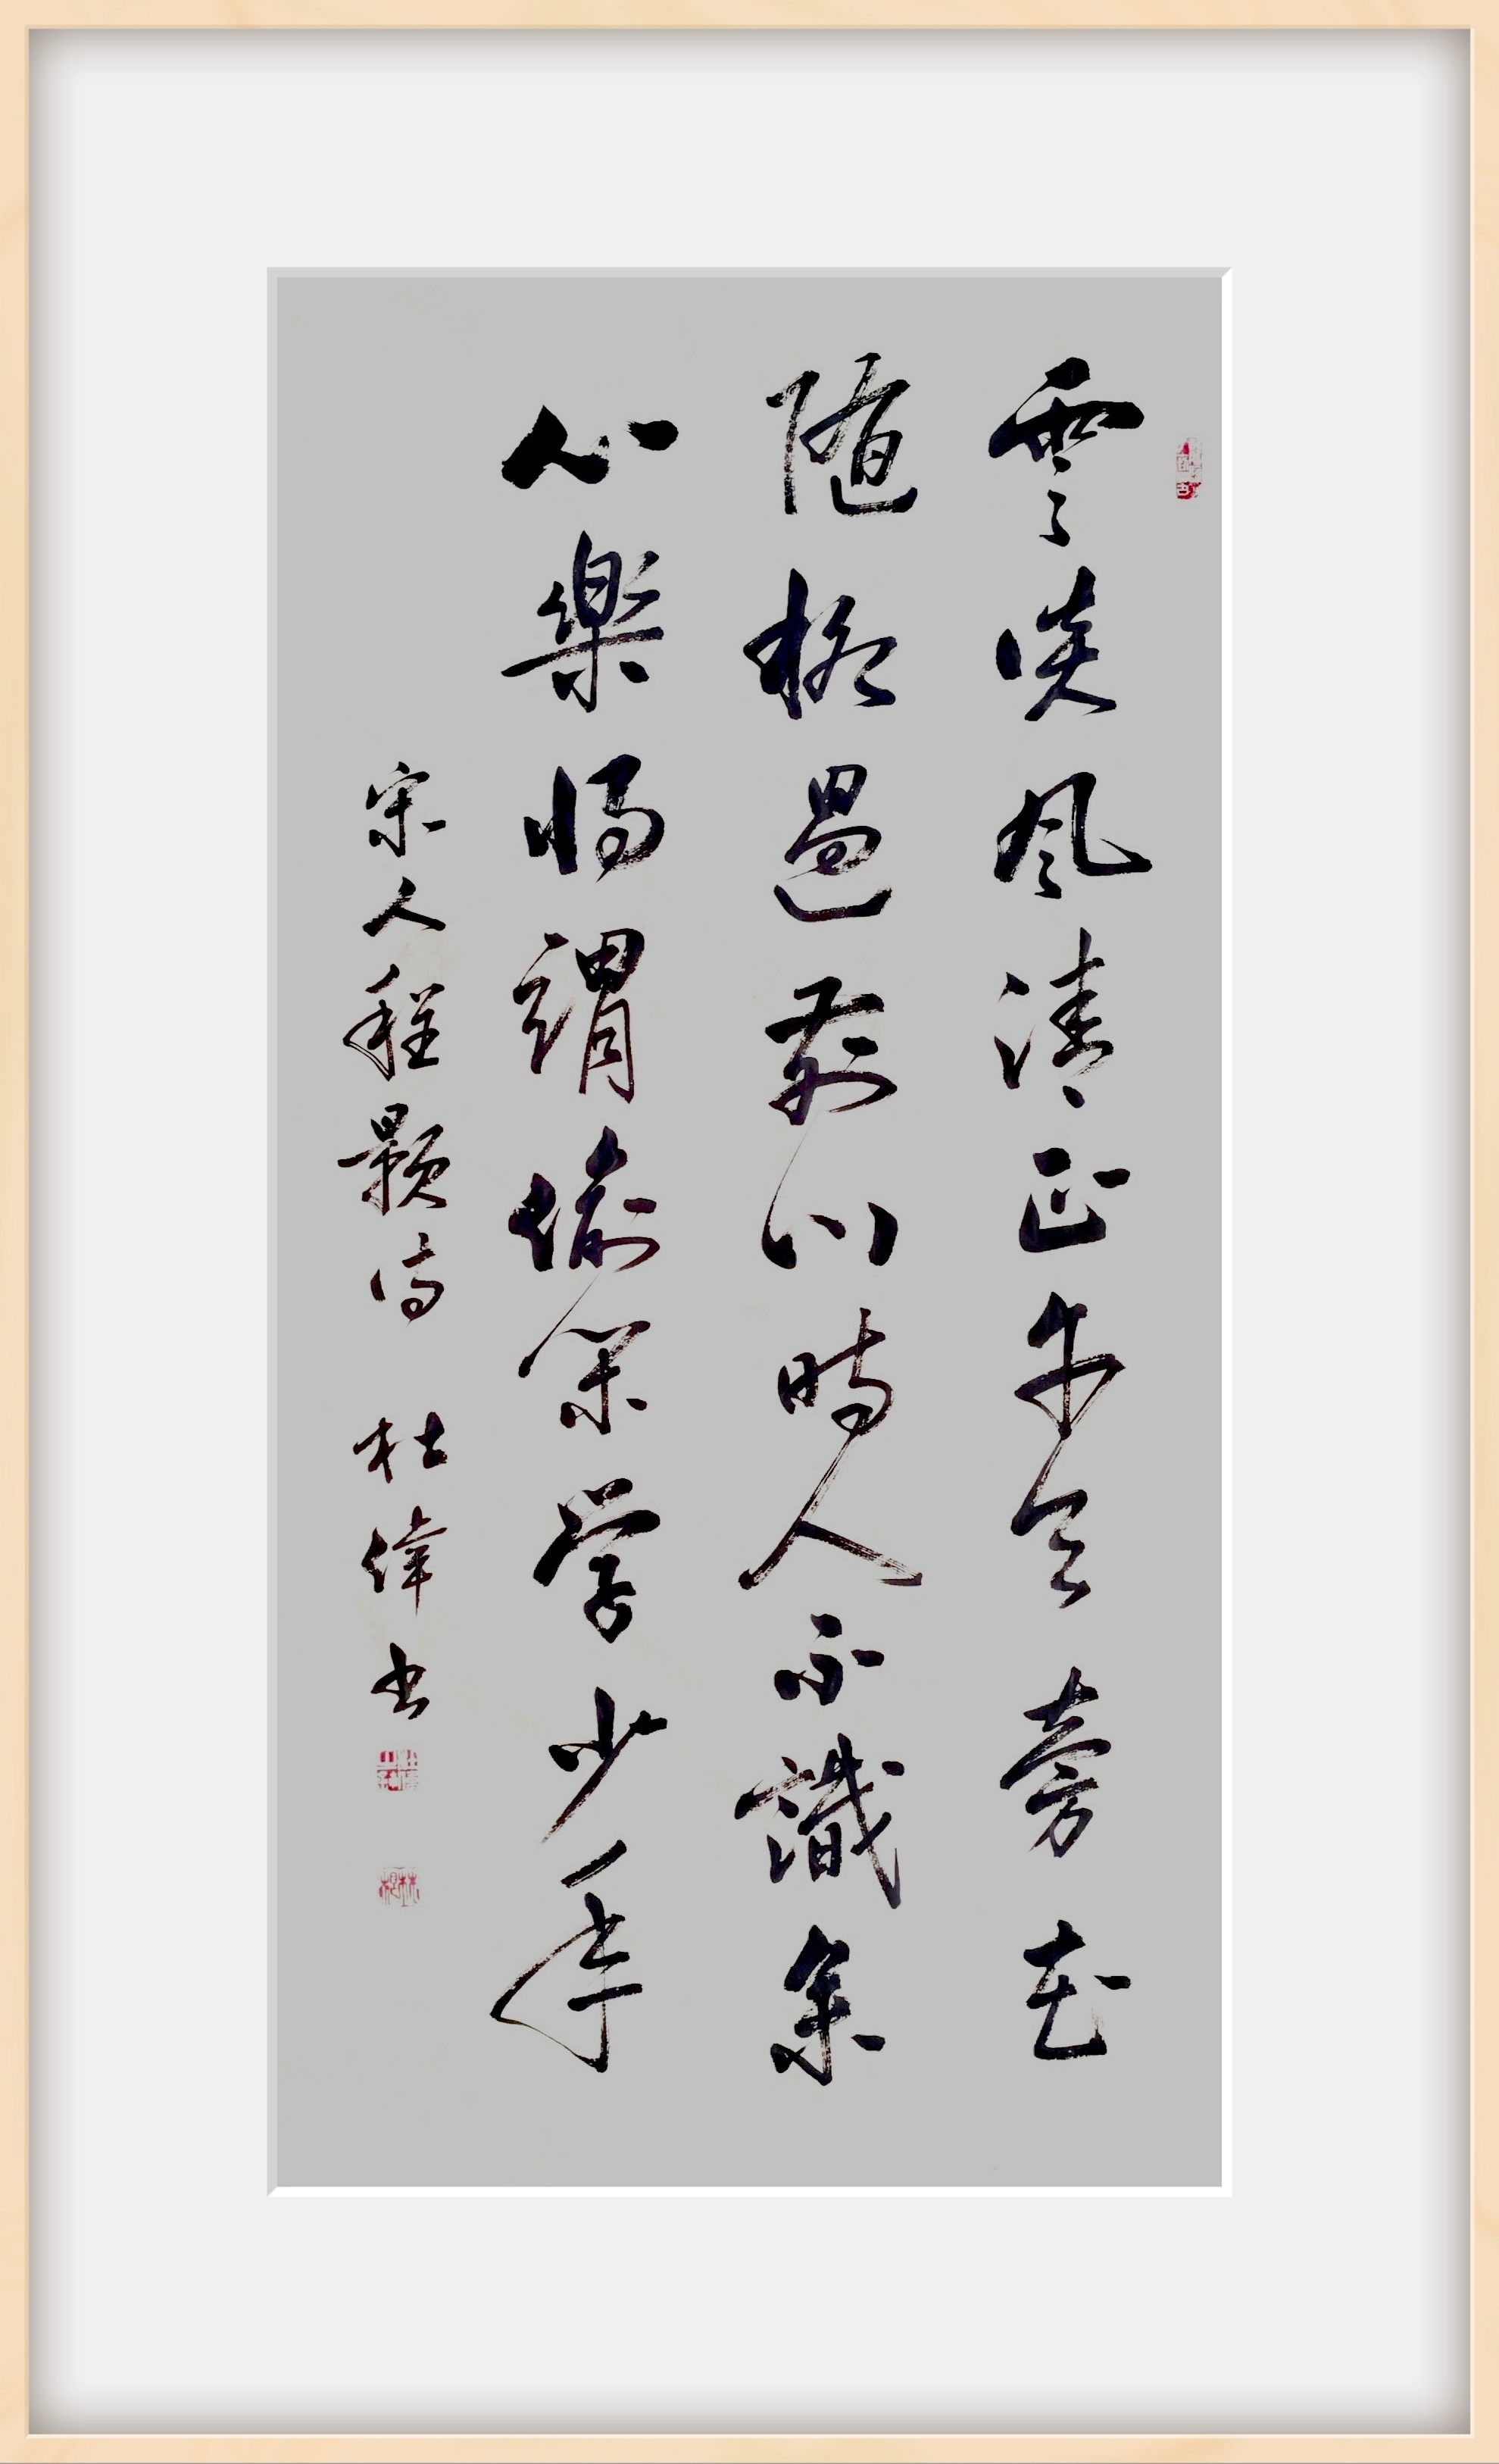 雲淡風清正午天旁花
隨柳過前川時人不識余
心樂將謂偷閑学少年
宋人程顥詩 杜偉书